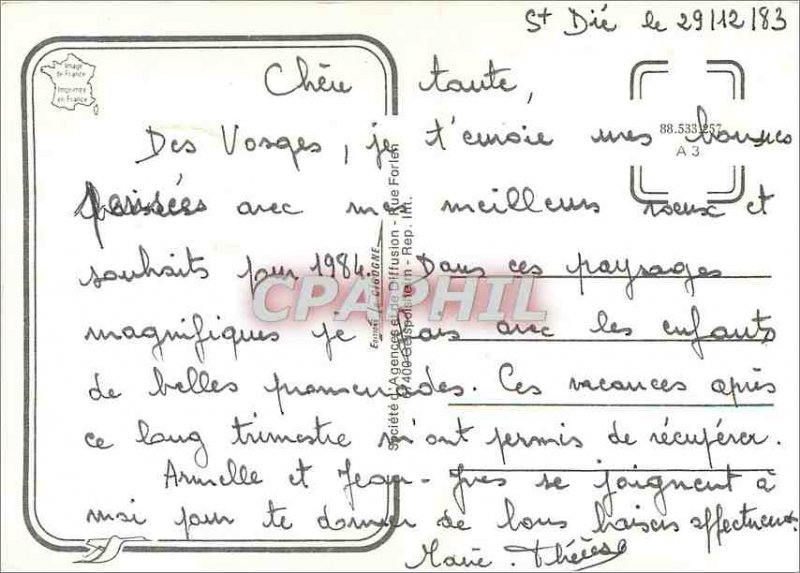 St Dié le 29/12/83
Image
de France
Imprimée
en France
Chère tante,
88.533.257
A 3
Des Vosges, je t'envoie mes bonnes
pensées avec mes meilleurs voeux et
souhaits pour 1984. Dans ces paysages
magnifiques je fais avec les enfants
de belles promenades. Ces vacances après
ce long trimestre m'ont permis de récupérer.
Armelle et Jean-Yves se joignent à
moi pour te donner de bons baisers affectueux.
Marie-Thérèse
Editions "La CIGOGNE"
Société d'Agences et de Diffusion - Rue Forlen
67400 Geispolsheim - Rep. Int.
CPAPHIL